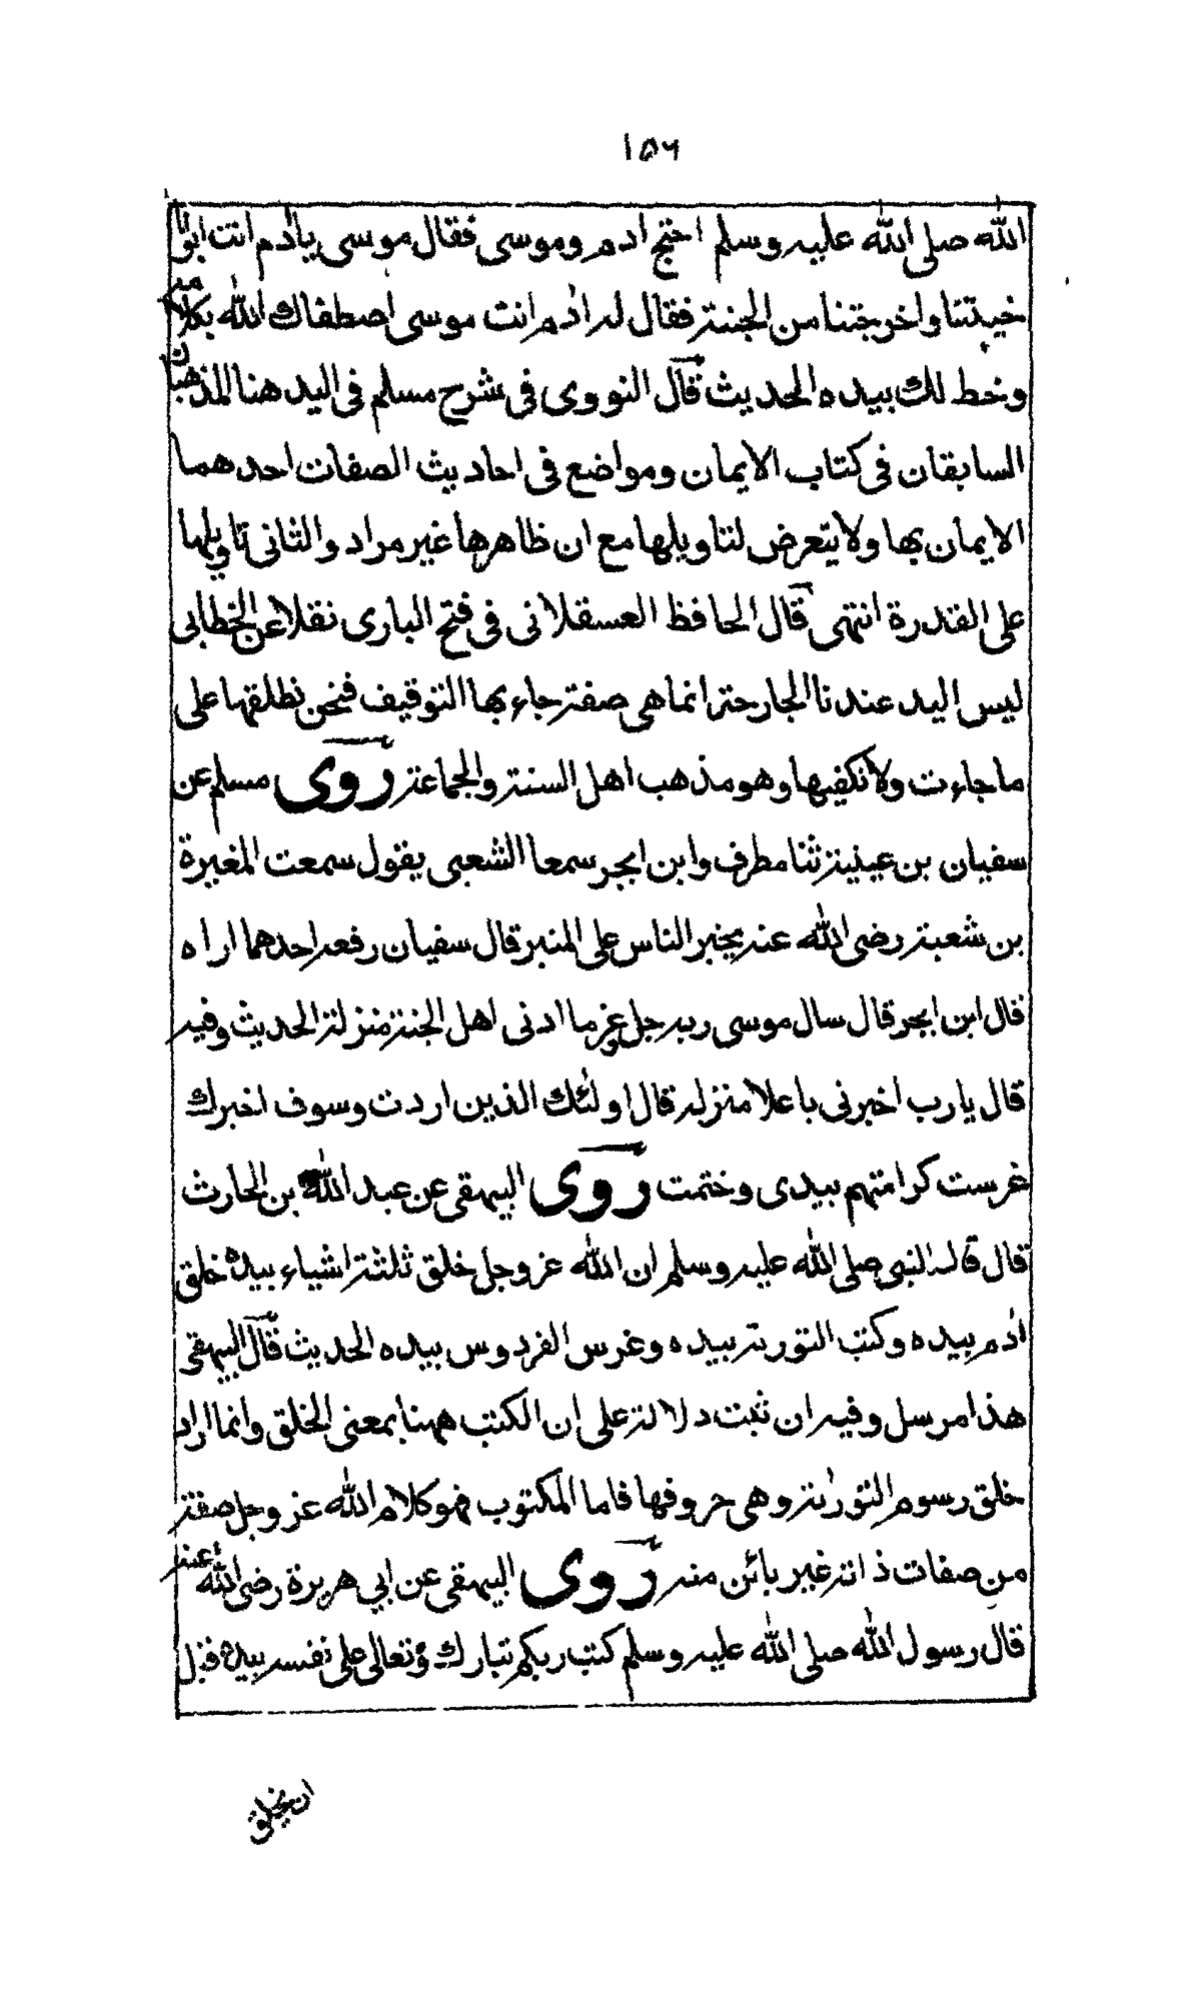 ۱۵۶
الله صلى الله عليه وسلم احتج ادم وموسى فقال موسى يا ادم انت ابونا
خيبتنا واخرجتنا من الجنة فقال له ادم انت موسى اصطفاك الله بكلامه
وخط لك بيده الحديث قال النووى فى شرح مسلم فى اليد هنا المذهبان
السابقان فى كتاب الايمان ومواضع فى احاديث الصفات احدهما
الايمان بها ولا يتعرض لتاويلها مع ان ظاهرها غير مراد والثانى تاويلها
على القدرة انتهى قال الحافظ العسقلانى فى فتح البارى نقلا عن الخطابى
ليس اليد عندنا الجارحة انما هى صفة جاء بها التوقيف فنحن نطلقها على
ما جاءت ولا نكفيها وهو مذهب اهل السنة والجماعة روى مسلم عن
سفيان بن عيينة ثنا مطرف وابن ابجر سمعا الشعبى يقول سمعت المغيرة
بن شعبة رضى الله عنه يخبر الناس على المنبر قال سفيان رفعه احدهما اراه
قال ابن ابجر قال سال موسى ربه جل عز ما ادنى اهل الجنة منزلة الحديث وفيه
قال يارب اخبرنى باعلا منزله قال اولئك الذين اردت وسوف اخبرك
غرست كرامتهم بيدى وختمت روى البيهقى عن عبد الله بن الحارث
قال قال النبى صلى الله عليه وسلم ان الله عز وجل خلق ثلثة اشياء بيده خلق
ادم بيده وكتب التورية بيده وغرس الفردوس بيده الحديث قال البيهقى
هذا مرسل وفيه ان ثبت دلالة على ان الكتب ههنا بمعنى الخلق وانما اراد
خلق رسوم التورىة وهى حروفها فاما المكتوب فهو كلام الله عز وجل صفة
من صفات ذاته غير بائن منه روى البيهقى عن ابي هريرة رضى الله عنه
قال رسول الله صلى الله عليه وسلم كتب ربكم تبارك وتعالى على نفسه بيده قبل
ان يخلق